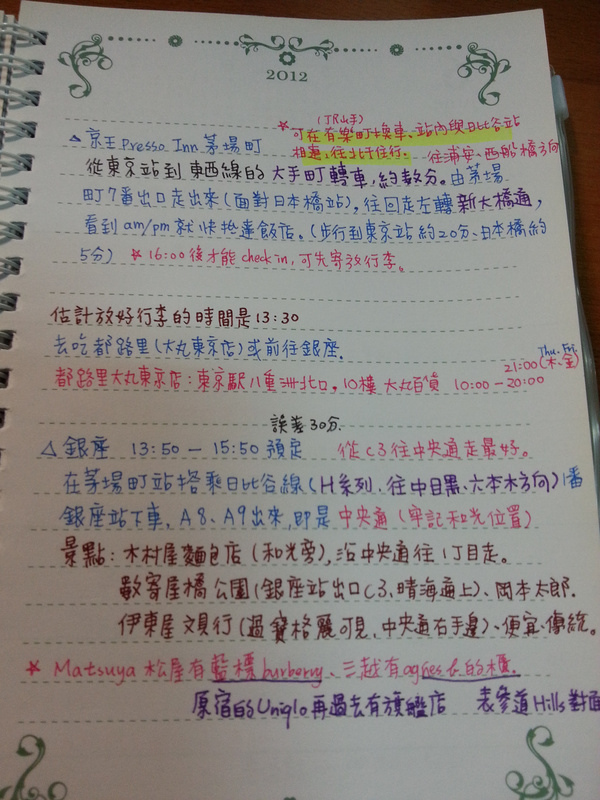 2012
(JR山手)
★可在有樂町換車、站內與日比谷站
相通,往北千住行。往浦安、西船橋方向
△京王 Presso Inn 茅場町
從東京站到東西線的大手町轉車,約數分。由茅場
町7番出口走出來(面對日本橋站),往回走左轉新大橋通,
看到am/pm就快抵達飯店。(步行到東京站約20分、日本橋約
5分) ★16:00後才能check in,可先寄放行李。
估計放好行李的時間是13:30
去吃都路里(大丸東京店)或前往銀座.
Thu. Fri.
21:00(木、金)
都路里大丸東京店:東京駅八重洲北口,10樓 大丸百貨 10:00-20:00
誤差30分.
△銀座 13:50-15:50 預定 從C3往中央通走最好。
在茅場町站搭乘日比谷線(H系列、往中目黑、六本木方向)1番
銀座站下車,A8、A9出來,即是中央通(牢記和光位置)
景點:木村屋麵包店(和光旁),沿中央通往1丁目走。
數寄屋橋公園(銀座站出口C3、晴海通上)、岡本太郎.
伊東屋文具行(過寶格麗可見,中央通右手邊)、便宜、傳統。
★Matsuya 松屋有藍標burberry、三越有agnes b.的櫃.
原宿的Uniqlo再過去有旗艦店 表參道Hills對面